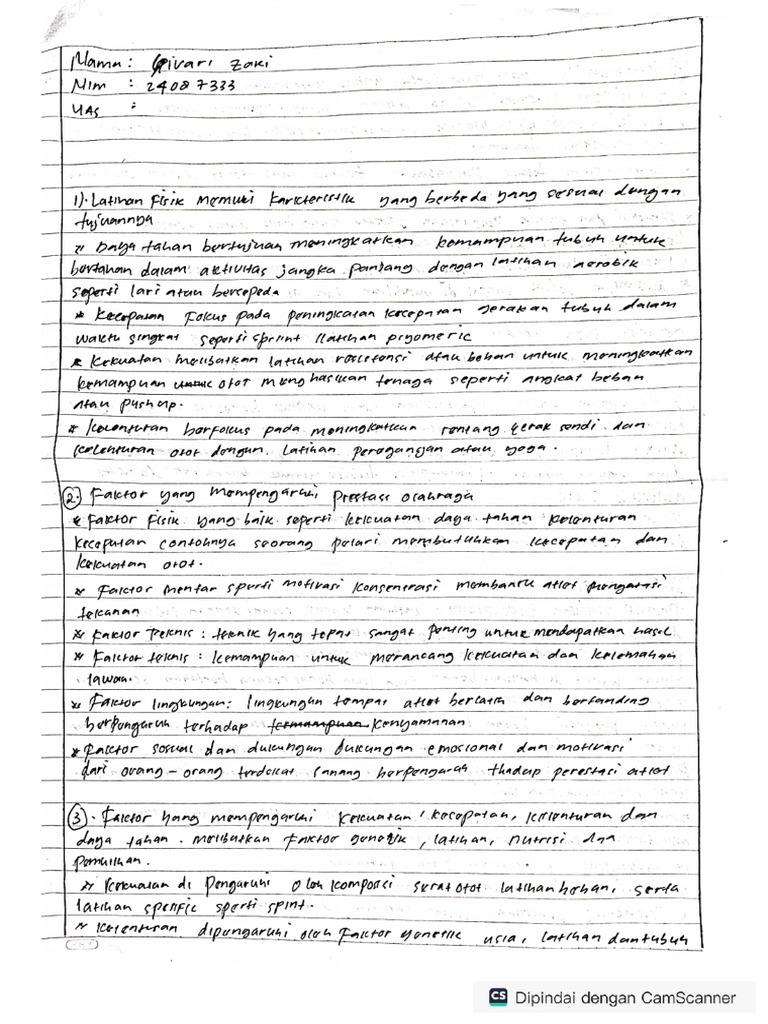 Nama : Givari Zaki
Nim : 24087333
UAS :
1). Latihan Fisik memiliki karakteristik yang berbeda yang sesuai dengan
tujuannya
* Daya tahan bertujuan meningkatkan kemampuan tubuh untuk
bertahan dalam aktivitas jangka panjang dengan latihan aerobik
seperti lari atau bersepeda.
* Kecepatan Fokus pada peningkatan kecepatan gerakan tubuh dalam
waktu singkat seperti sprint latihan plyometric
* Kekuatan melibatkan latihan resistensi atau beban untuk meningkatkan
kemampuan otot menghasilkan tenaga seperti angkat beban
atau push up.
* Kelenturan berfokus pada meningkatkan rentang gerak sendi dan
kelenturan otot dengan latihan peregangan atau yoga.
2. Faktor yang mempengaruhi prestasi olahraga
* Faktor Fisik yang baik seperti kekuatan daya tahan kelenturan
kecepatan contohnya seorang pelari membutuhkan kecepatan dan
kekuatan otot.
* Faktor mental sperti motivasi konsentrasi membantu atlet mengatasi
tekanan
* Faktor Teknis : teknik yang tepat sangat penting untuk mendapatkan hasil
* Faktor teknis : kemampuan untuk merancang kekuatan dan kelemahan
lawan.
* Faktor lingkungan: lingkungan tempat atlet berlatih dan bertanding
berpengaruh terhadap kenyamanan
* Faktor sosual dan dukungan dukungan emosional dan motivasi
dari orang-orang terdekat sanang berpengaruh thadap perestasi atlet
3. Faktor yang mempengaruhi kekuatan, kecepatan, kelenturan dan
daya tahan. melibatkan faktor genetik, latihan, nutrisi dan
pemulihan.
* Kekuatan di pengaruhi oleh komposisi serat otot latihan beban, serta
latihan spesific sperti spint.
* Kelenturan dipengaruhi oleh Faktor genetik usia, latihan dan tubuh
CS Dipindai dengan CamScanner